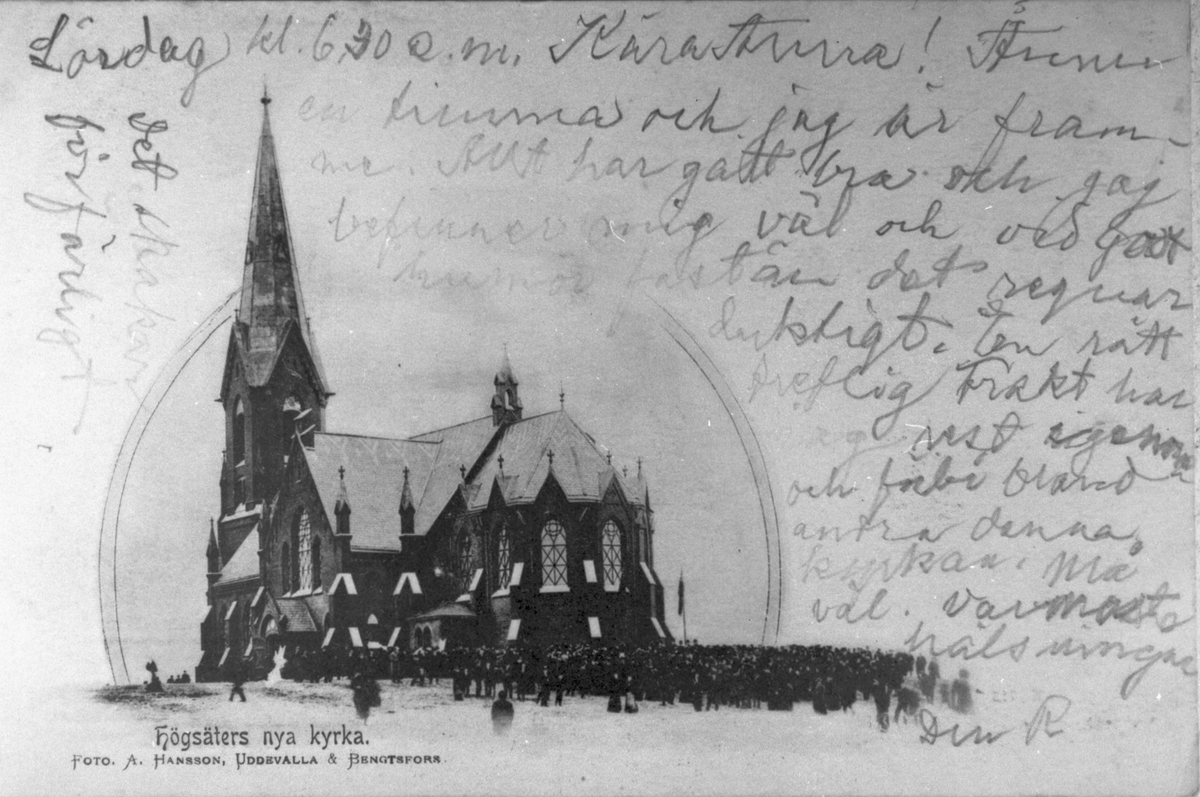 Lördag kl. 6 30 e.m. Kära Anna! Ännu
en timma och jag är fram-
me. Allt har gått bra och jag
befinner mig väl och vid godt
humör fastän det regnar
duktigt. En rätt
treflig trakt har
jag rest igenom
och förbi bland
andra denna
kyrkan. Må
väl. Varmaste
hälsningar
Din R
Det skakar
förfärligt
Högsäters nya kyrka.
Foto. A. Hansson, Uddevalla & Bengtsfors.